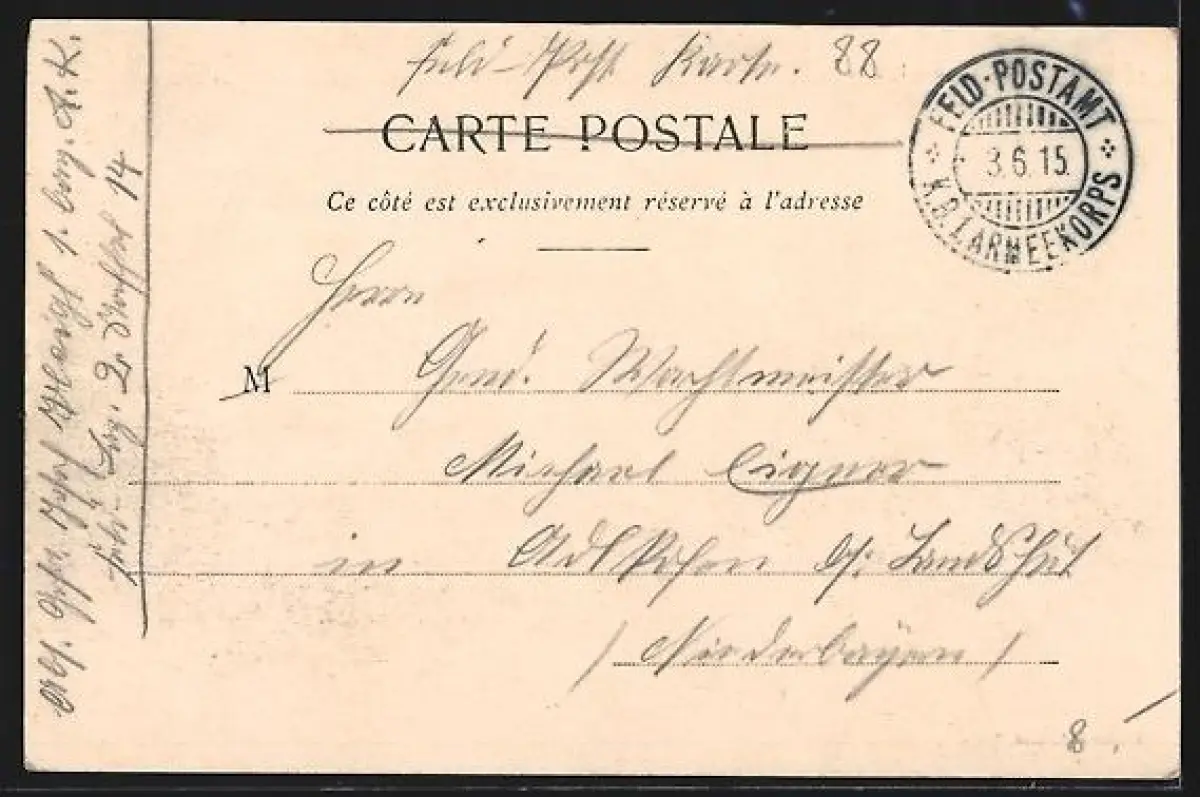 Feld-Post Karte. 88
CARTE POSTALE
Ce côté est exclusivement réservé à l'adresse
FELD-POSTAMT
3.6.15.
K.B.I.ARMEEKORPS
Herrn
M Gend. Wachtmeister
Michael Eigner
in Adlkofen b/ Landshut
/ Niederbayern /
8.
Abs. 1. bay. A.K.
Feld- Laz. 2. 14